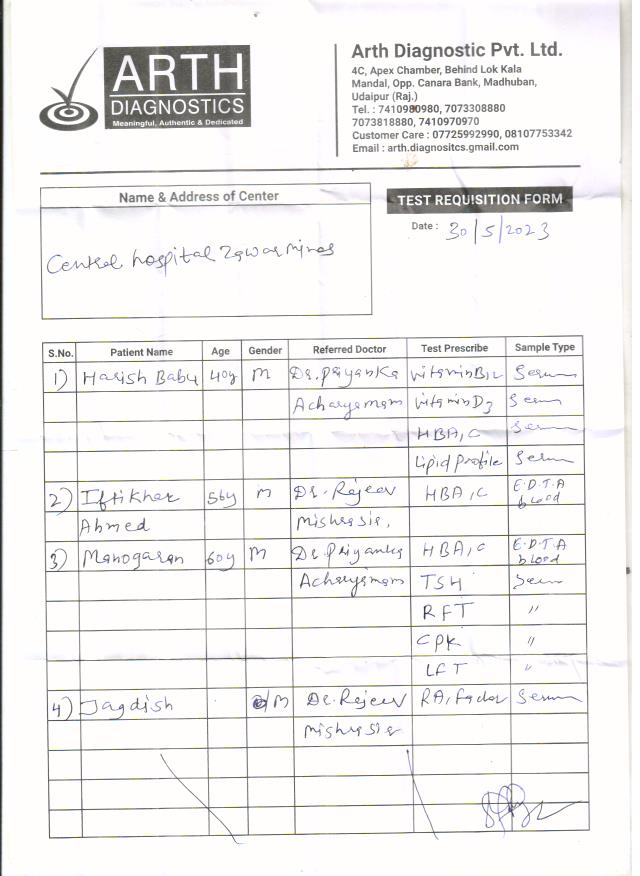 ARTH
DIAGNOSTICS
Meaningful, Authentic & Dedicated
Arth Diagnostic Pvt. Ltd.
4C, Apex Chamber, Behind Lok Kala
Mandal, Opp. Canara Bank, Madhuban,
Udaipur (Raj.)
Tel. : 7410980980, 7073308880
7073818880, 7410970970
Customer Care : 07725992990, 08107753342
Email : arth.diagnositcs.gmail.com
Name & Address of Center
TEST REQUISITION FORM
Date : 30/5/2023
Central hospital Zawar Mines
S.No. Patient Name Age Gender Referred Doctor Test Prescribe Sample Type
1) Harish Babu 40y M Dr. Priyanka Vitamin B12 Serum
Acharya mam Vitamin D3 Serum
HBA1C Serum
Lipid Profile Serum
2) Iftikher 56y M Dr. Rajeev HBA1C E.D.T.A blood
Ahmed Mishra sir,
3) Manogaran 60y M Dr. Priyanka HBA1C E.D.T.A blood
Acharya mam TSH Serum
RFT "
CPK "
LFT "
4) Jagdish M Dr. Rajeev RA, factor Serum
Mishra sir